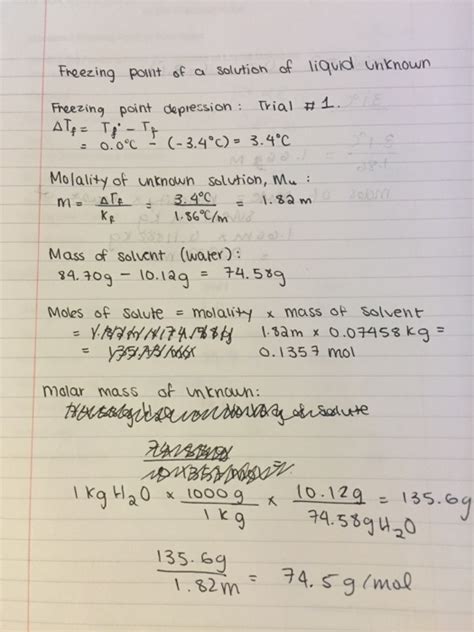 Freezing point of a solution of liquid unknown
Freezing point depression: Trial #1.
ΔTf = Tf° - Tf
= 0.0°C - (-3.4°C) = 3.4°C
Molality of unknown solution, Mu:
m = ΔTf / Kf = 3.4°C / 1.86°C/m = 1.82m
Mass of solvent (water):
84.70g - 10.12g = 74.58g
Moles of solute = molality x mass of solvent
= 1.82m x 0.07458kg =
= 0.1357 mol
Molar mass of unknown:
of solute
1kg H2O x 1000g / 1kg x 10.12g / 74.58g H2O = 135.6g
135.6g / 1.82m = 74.5g/mol